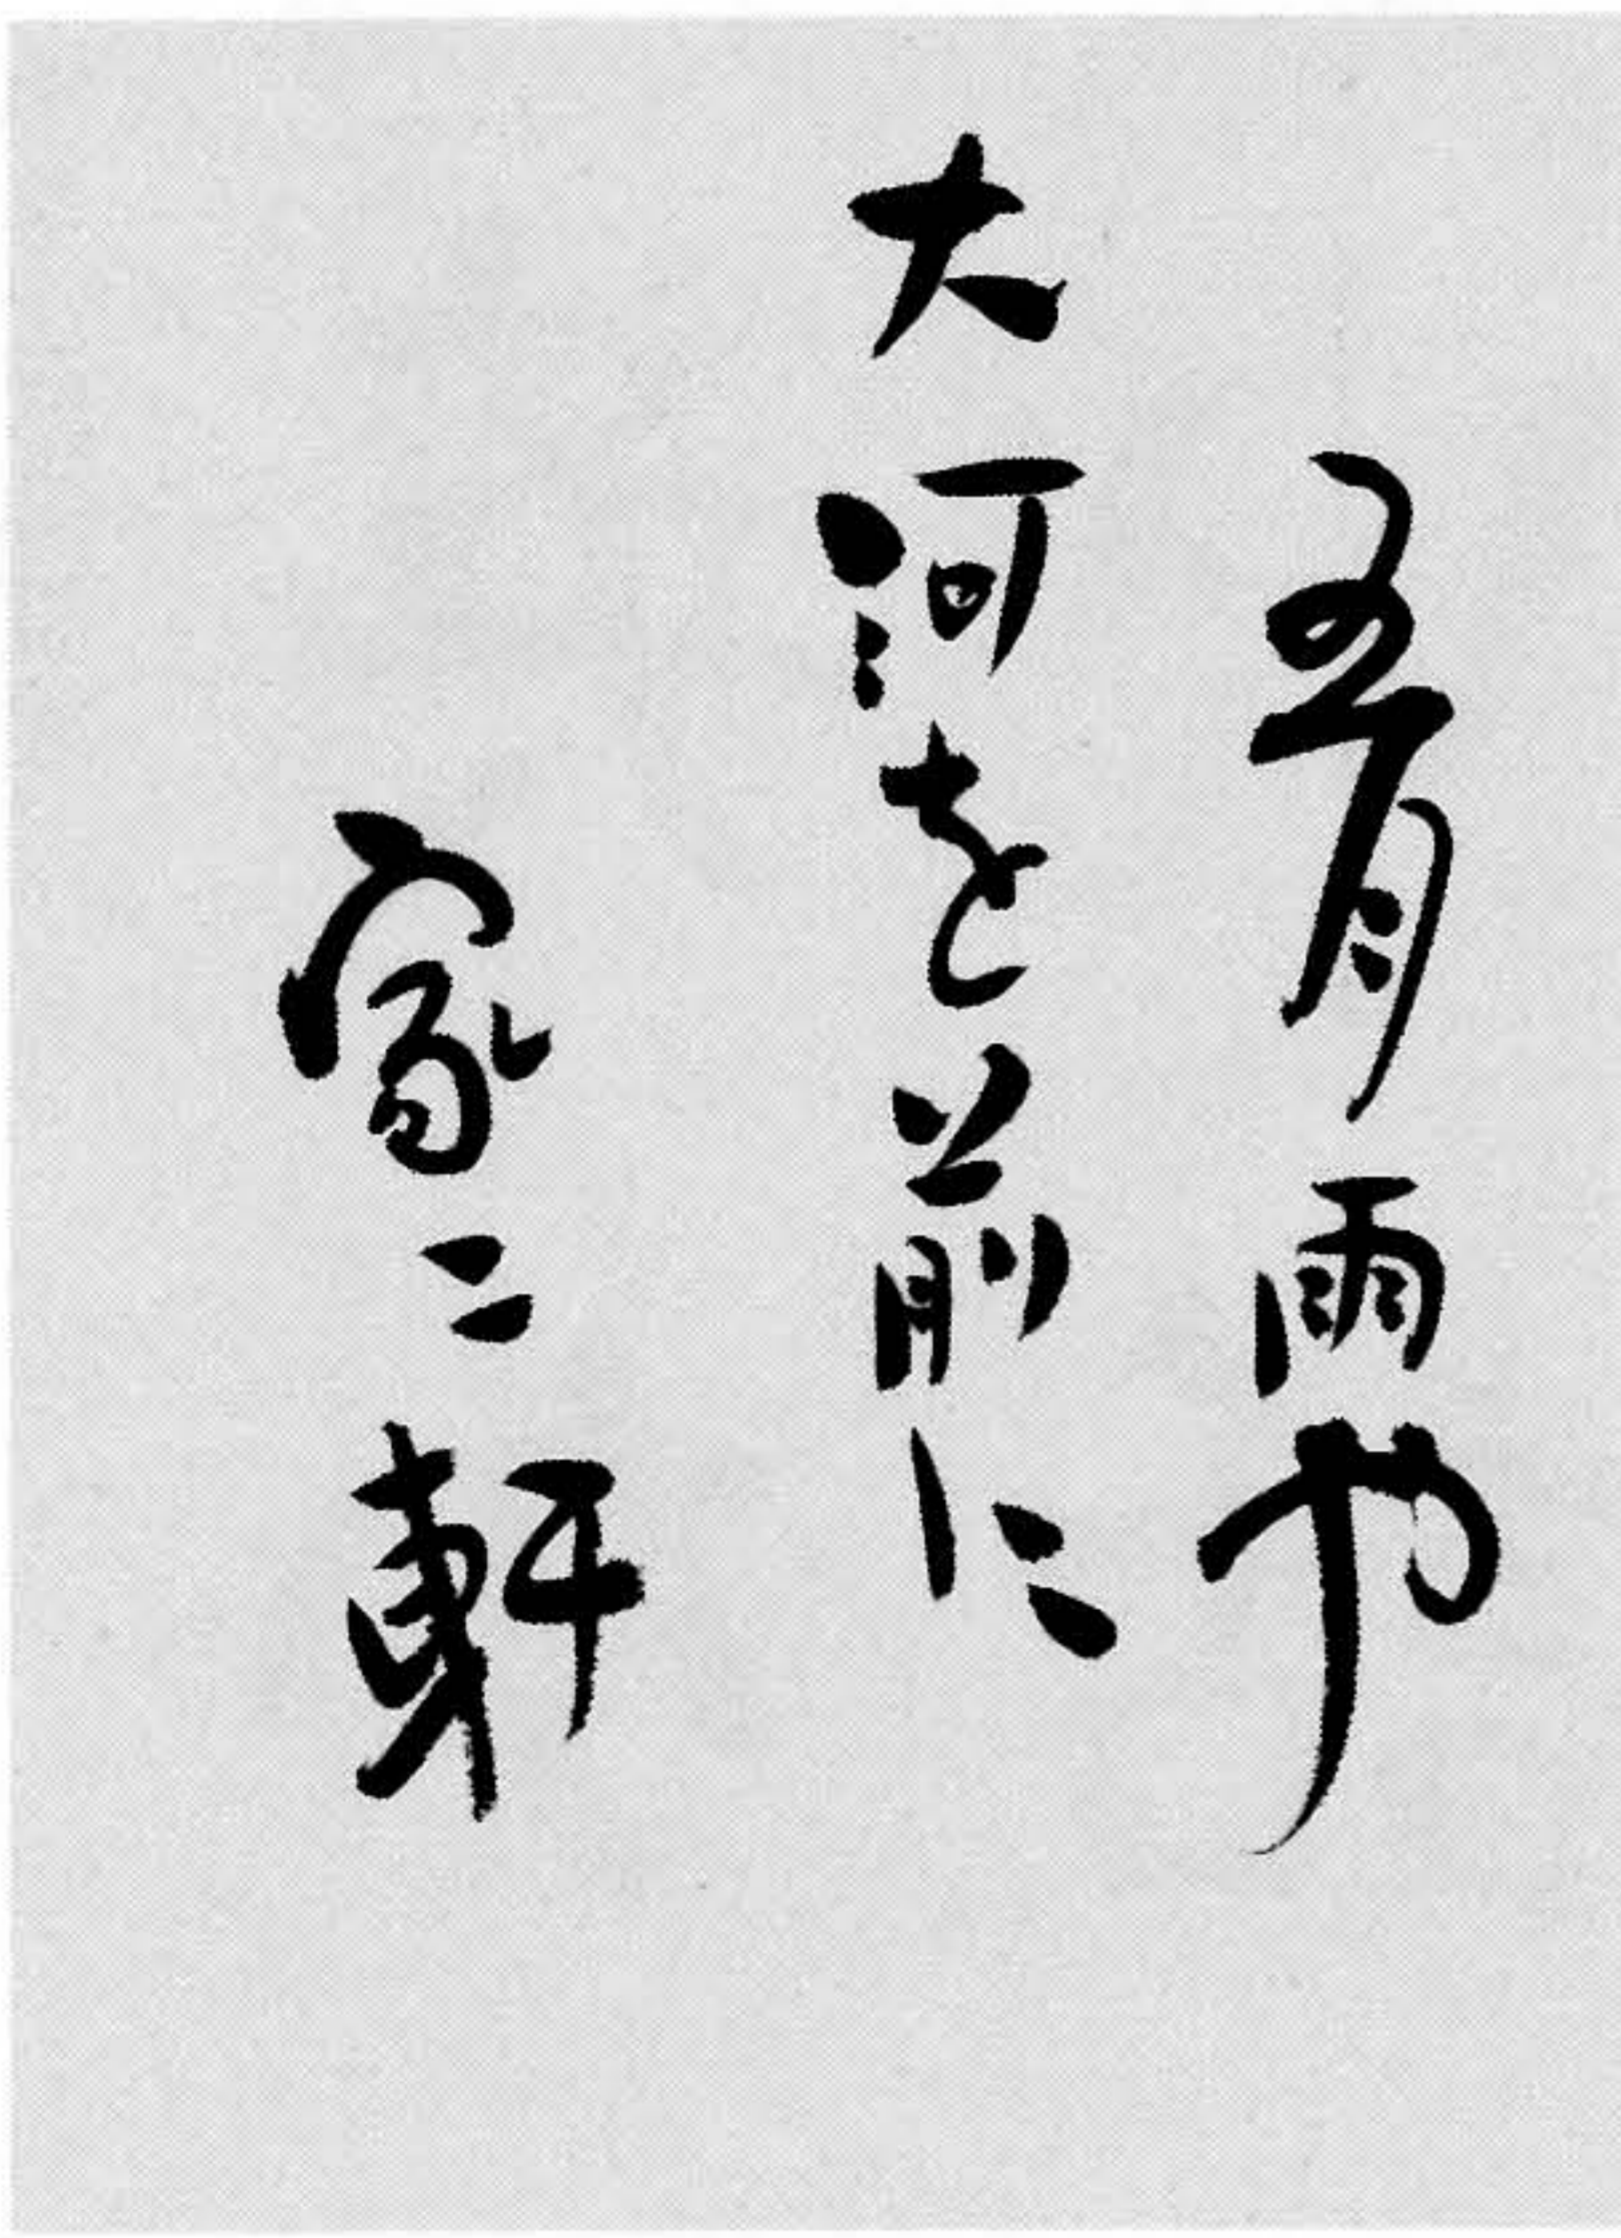 五月雨や
大河を前に
家二軒